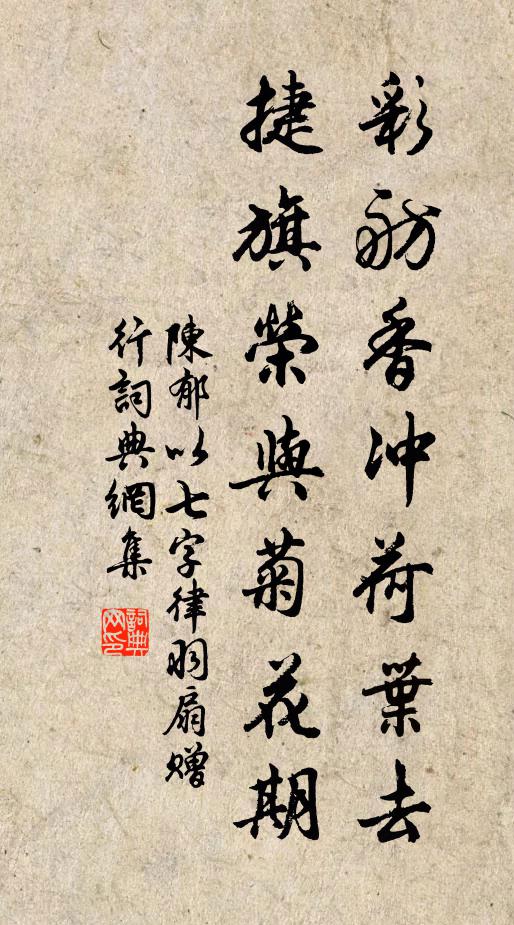 彩舫香沖荷葉去
捷旗榮與菊花期
陳郁以七字律羽扇贈
行詞典網集
詞典网印